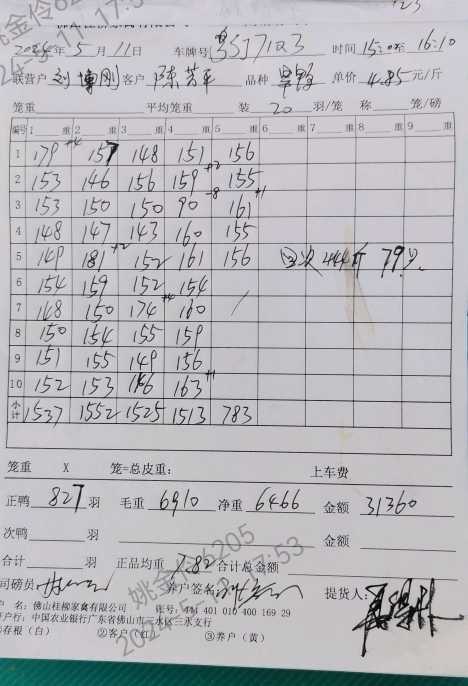 2024年5月11日 车牌号 时间 15:00至16:10
联营户 刘博刚 客户 陈芳平 品种 单价 4.85 元/斤
笼重 平均笼重 装 20 羽/笼 称 笼/磅
编号 1 重 2 重 3 重 4 重 5 重 6 重 7 重 8 重 9 重
1 179 +4 157 148 151 156
2 153 146 156 159 +2 155
3 153 150 150 90 -8 161 +1
4 148 147 143 160 155
5 149 181 +2 152 161 156 444斤 79只
6 154 159 152 154
7 148 150 174 +4 160 /
8 150 154 155 159
9 151 155 149 156
10 152 153 146 163 +1
小计 1537 1552 1525 1513 783
笼重 X 笼=总皮重: 上车费
正鸭 827 羽 毛重 6910 净重 6466 金额 31360
次鸭 羽 金额
合计 羽 正品均重 7.82 合计总金额
司磅员 养户签名 提货人:
户 名: 佛山桂柳家禽有限公司 账号: 444 401 010 400 169 29
开户行: 中国农业银行广东省佛山市三水区三水支行
①存根(白) ②客户(红) ③养户(黄)
姚金伶6205
2024-5-12 17:53